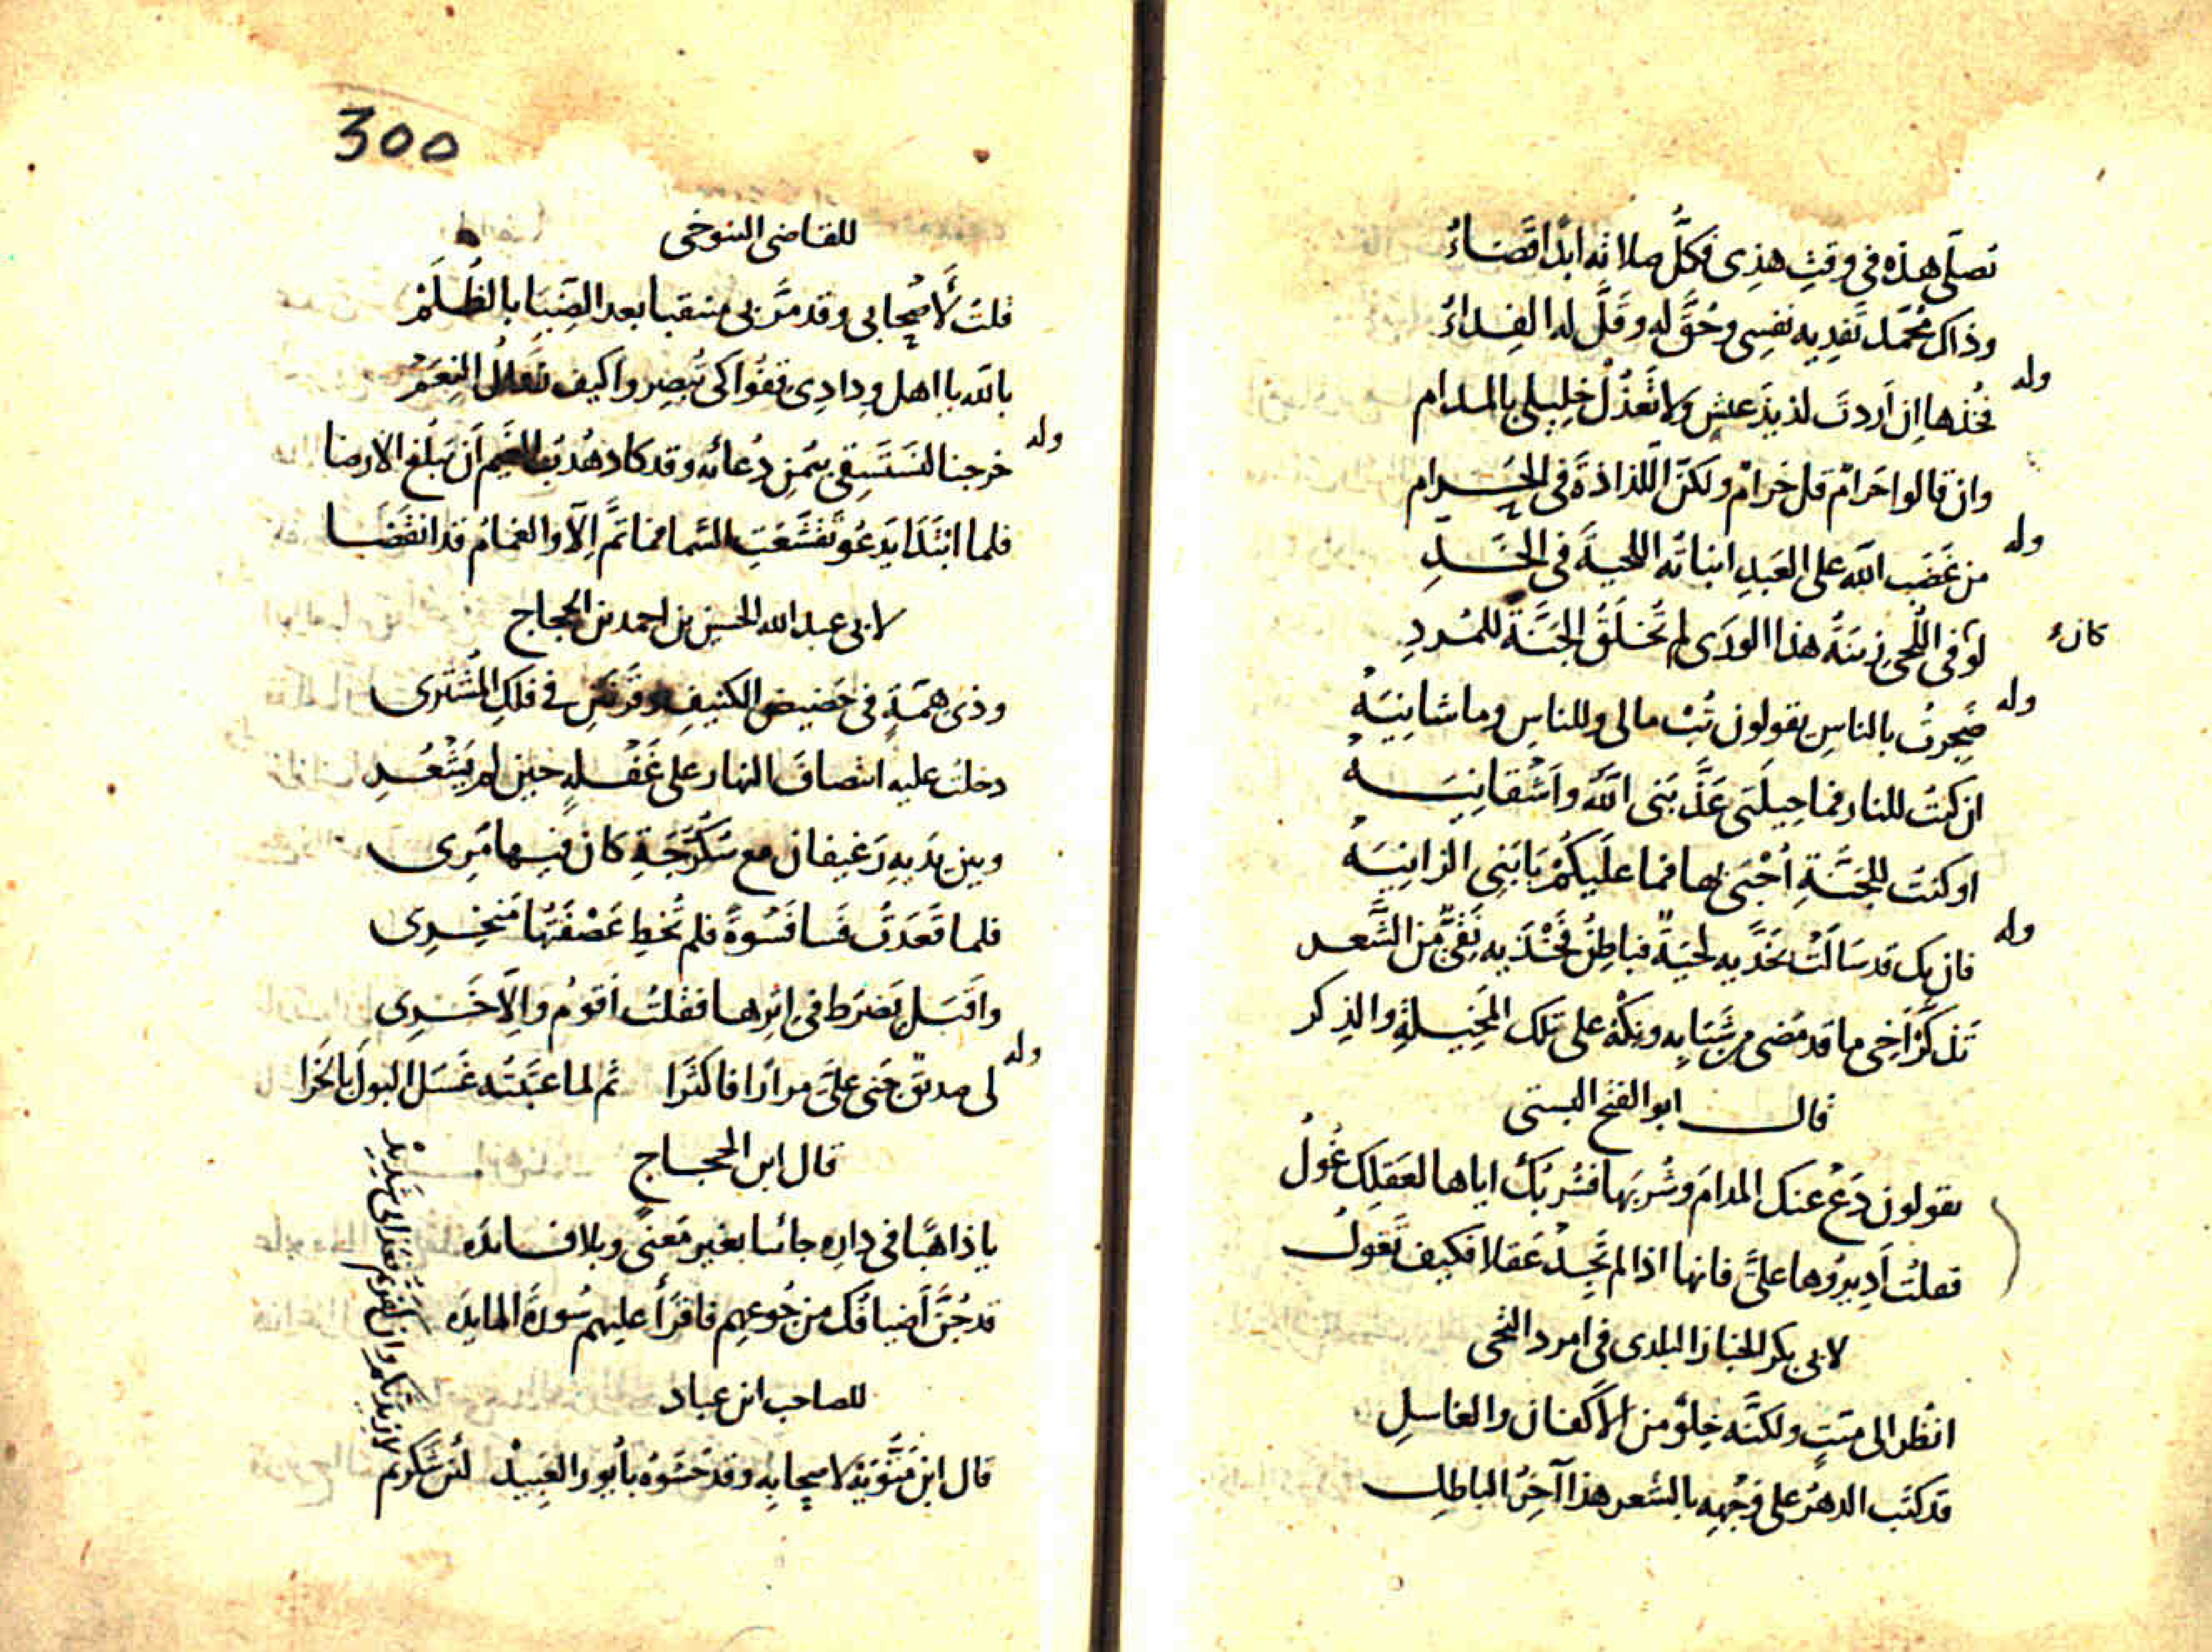 تصلى هذه فى وقت هذى فكلُّ صلاته ابدًا قَضَاءُ
وذاك محمّد تفديه نفسى وحُقَّ له وقَلَّ له الفداءُ
وله
فخذها ان اردتَ لذيذ عيش ولا تعذُل خليلى بالمدام
وان قالوا حَرامٌ قل حَرامٌ ولكنّ اللذاذةَ فى الحرام
وله
من غَضَب الله على العبد انباته اللحية فى الخدِّ
لو فى اللحى زينةُ هذا الورى لم تُخلَقُ الجنّةُ للمُردِ
كان
وله
ضجرتُ بالناس يقولون تُبْ مالى وللناس وما شانِيَهْ
ان كنتُ للنار فما حيلتى عذّبنى الله واَشْقانِيَهْ
او كنتُ للجنّةِ اُحْبَى بها فما عليكمْ يا بنى الزانِيَهْ
وله
فان يك قد سالَتْ بخدّيه لحيةٌ فباطِنُ فخْذَيه نَقىٌّ من الشَّعر
تذكّرْ اَخى ما قد مضى من شبابه ونِكْهُ على تلك المخيلة والذكر
قال ابو الفتح البستى
يقولون دَعْ عنك المدامَ وشُربَها فشُربُك اياها لعَقلِك غُولُ
فقلتُ اَديرُوها علىَّ فانها اذا لم تجِدْ عَقلا فكيف تَغولُ
لابى بكر الخباز البلدى فى امرد التحى
انظُر الى ميّتٍ ولكنّه خِلوٌ من الاَكفان والغاسلِ
قد كتب الدهرُ على وجهه بالشعر هذا آخِرُ الباطِلِ
300
للقاضى التنوخى
قلتُ لاَصْحابى وقد مَرَّ بى منتقبا بعد الضِّيا بالظُلَمْ
بالله يا اهل ودادى قفُوا كى تُبصِروا كيف زَوالُ النِعَمْ
وله
خرجنا لنَستَسقى بيُمنِ دُعائه وقد كاد هُدبُ الغَيم اَن يَبلُغ الارضا
فلما ابتَدَا يَدعُو تَقَشَّعَتِ السَّما فما تَمَّ اِلاّ والغمامُ قد انفَضّا
لابى عبد الله الحسين بن احمد بن الحجاج
وذى همّةٍ فى حَضيض الكنيفِ وقَرنَين فى فلكِ المُشتَرى
دخلتُ عليه انتصافَ النهار على غَفلةٍ حين لم يَشْعُرِ
وبين يديهِ رَغيفان مع سُكُرّجَةٍ كان فيها مُرى
فلما قَعَدتُ فَسا فَسْوةً فلم تُخطِ عَصْفَتُها مَنخِرِى
واقَبَل يَضرَط فى اثرها فقلتُ اَقومُ واِلاّ خَرِى
وله
لى صديقٌ جَنى علىَّ مرارًا فاكثَرا ثم لما عَتَبتُه غَسَل البولَ بالخَرا
قال ابن الحجاج
يا ذاهبًا فى دارِه جائيا بغير مَعنًى وبلا فائدَه
قد جُنَّ اَضيافُك من جُوعِهم فاقرَأ عليهم سُورةَ المايدَه
للصاحب ابن عباد
قال ابنُ مَتُّوَيْهَ لاصحابِه وقد حَشَوهُ باُيورِ العَبيدْ لئن شَكرتم
لازيدنّكم وان كفرتم فعذابى شديدْ